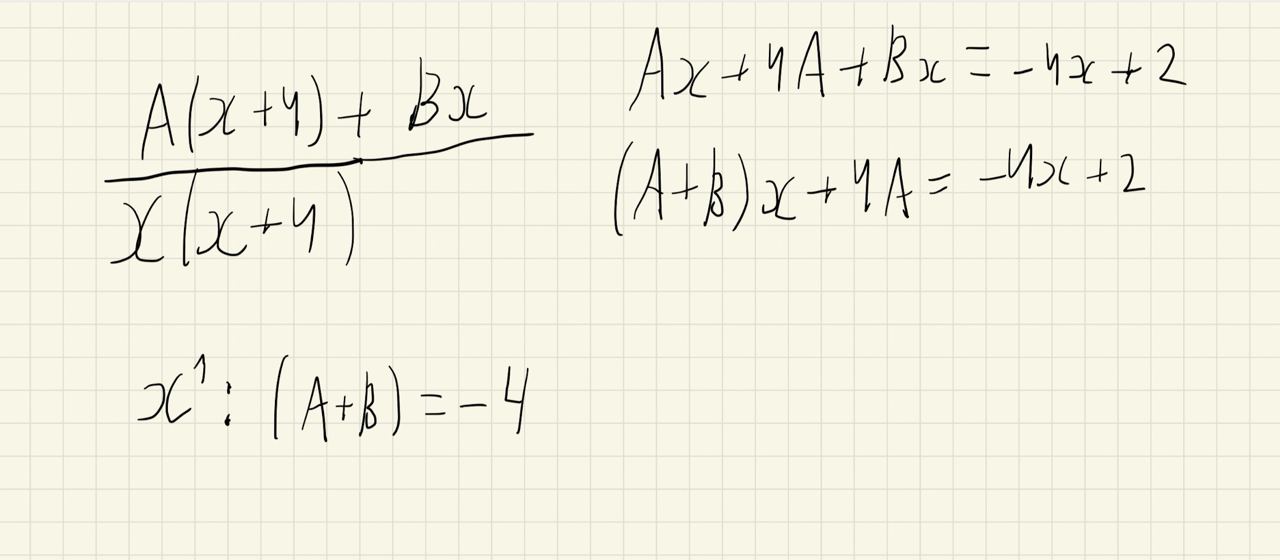 A(x+4) + Bx
x(x+4)
Ax + 4A + Bx = -4x + 2
(A+B)x + 4A = -4x + 2
x¹ : (A+B) = -4